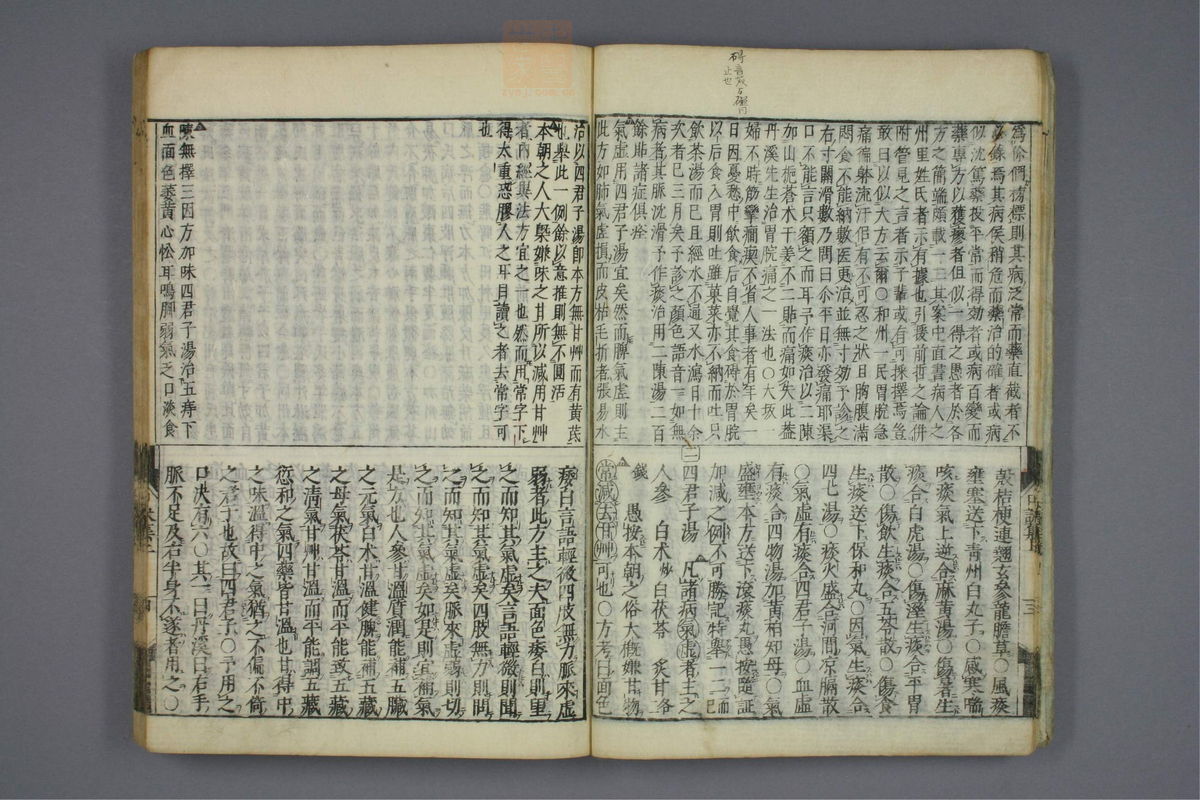 碍音
止也
必錄焉其病候稍危而藥治的確者或病
似沈篤藥投平常而得効者或病百變而
藥專方以獲瘳者但似一得之愚者於各
方之簡端頗載一二其案中直書病人之
州里姓氏者示有據也引援前哲之論併
附管見之言者示子輩或有可採擇焉豈
敢曰以似大方云爾〇和州一民胃脘急
痛倦躰流汗但有不可忍之狀日胸腹滿
悶食不能納數医更治並無寸効予診之
右寸關滑數乃問曰尓平日亦發痛耶渠
口不能言只頷之而耳予作痰治以二陳
加山栀苍木干姜不二貼而痛如失此葢
丹溪先生治胃脘痛之一法也〇大坂一
婦不時筋攣癇瘛不省人事者有年矣一
日因憂愁中飲食后自覺其食碍於胃脘
以后食入胃則吐雖菓菜亦不納而吐只
飲茶湯而已且經水不通又水瀉日十余
次者已三月矣予診之顏色語音一如無
病者其脈沈滑予作痰治用二陳湯二百
餘貼諸症俱痊
氣虛用四君子湯宜矣然而脾氣虛則主
此方如肺氣虛損而皮枯毛折者張易水
殼桔梗連翹玄參龍膽草〇風痰
壅塞送下青州白丸子〇感寒喘
咳痰氣上逆合麻黃湯〇傷暑生
痰合白虎湯〇傷溼生痰合平胃
散〇傷飲生痰合五苓散〇傷食
生痰送下保和丸〇因氣生痰合
四七湯〇痰火盛合河間凉膈散
〇氣虛有痰合四君子湯〇血虛
有痰合四物湯加黃栢知母〇氣
盛壅本方送下滚痰丸愚按隨証
加減之例不可勝記特舉一二已
二
四君子湯 凡諸病氣虛者主之
人參 白朮炒 白茯苓 炙甘各
錢 愚按本朝之俗大概嫌甘物
常減去甘艸可也〇方考曰面色
治以四君子湯即本方無甘艸而有黃茋
凡舉此一例餘以意推則無不圓活
本朝之人大槩嫌味之甘所以減用甘艸
者內經異法方宜之一而也然而用常字下
得太重恐膠人之耳目讀之者去常字可
也
陳無擇三因方加味四君子湯治五痔下
血面色萎黃心忪耳鳴脚弱氣乏口淡食
痿白言語輕微四肢無力脈來虛
弱者此方主之夫面色痿白則望
之而知其氣虛矣言語輕微則聞
之而知其氣虛矣四肢無力則問
之而知其氣虛矣脈來虛弱則切
之而知其氣虛矣如是則宜補氣
是方也人參甘溫質潤能補五臟
之元氣白朮甘溫健脾能補五藏
之母氣茯苓甘溫而平能致五藏
之清氣甘艸甘溫而平能調五藏
愆和之氣四藥皆甘溫也甘得中
之味溫得中之氣猶之不偏不倚
之君子也故曰四君子〇予用之
口决有六〇其一曰丹溪曰右手
脈不足及右半身不遂者用之〇